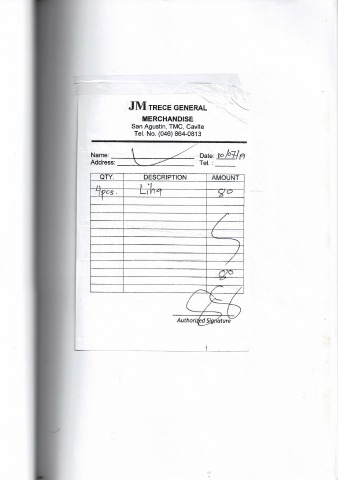 JM TRECE GENERAL
MERCHANDISE
San Agustin, TMC, Cavite
Tel. No. (046) 864-0813
Name: Date: 10/07/19
Address: Tel.:
QTY. DESCRIPTION AMOUNT
4pcs. Liha 80
80
Authorized Signature